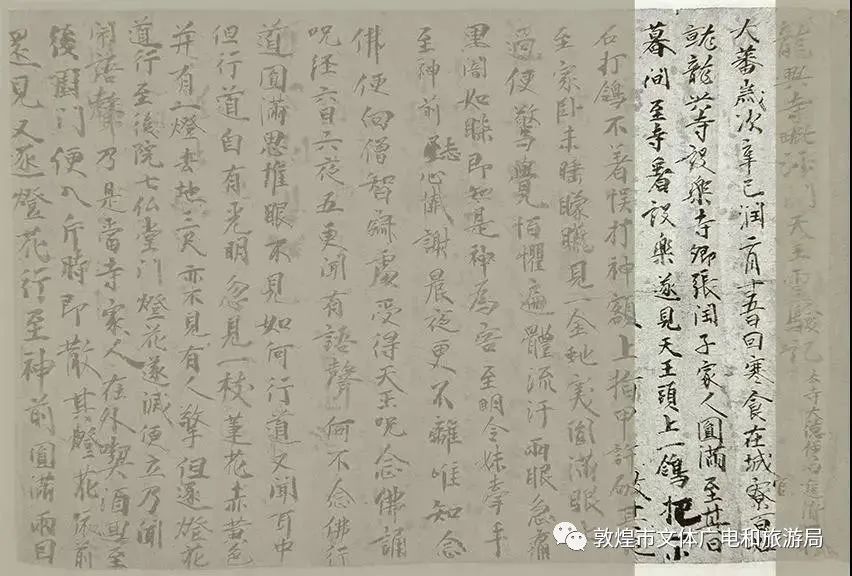 龍興寺毗沙門天王靈驗記 本寺大德僧日進附
大蕃歲次辛巳潤二月十五日因寒食在城寮百姓
就龍興寺設樂寺卿張閏子家人圓滿至其日
暮間至寺看設樂遂見天王頭上一鴿把小
石打鴿不著悮打神額上指甲許破其
至家臥未睡朦朧見一金蛇突圓滿眼
過便驚覺怕懼遍體流汗兩眼急痛
黑闇如睞即知是神為害至明令妹牽手
至神前志心懺謝晨夜更不離唯知念
佛便向僧智處受得天王呪念佛誦
呪經六日六夜五更聞有語聲何不念佛行
道圓滿思惟眼不見如何行道又聞耳中
但行道自有光明忽見一枝蓮花赤黃色
并有一燈去地三尺亦不見有人擎但逐燈花
道行至後院七仏堂門燈花遂滅便立乃聞
閙語聲乃是當寺家人在外喫酒
後廚門便入片時即散其燈花依前
還見又逐燈花行至神前圓滿兩目
敦煌市文体广电和旅游局